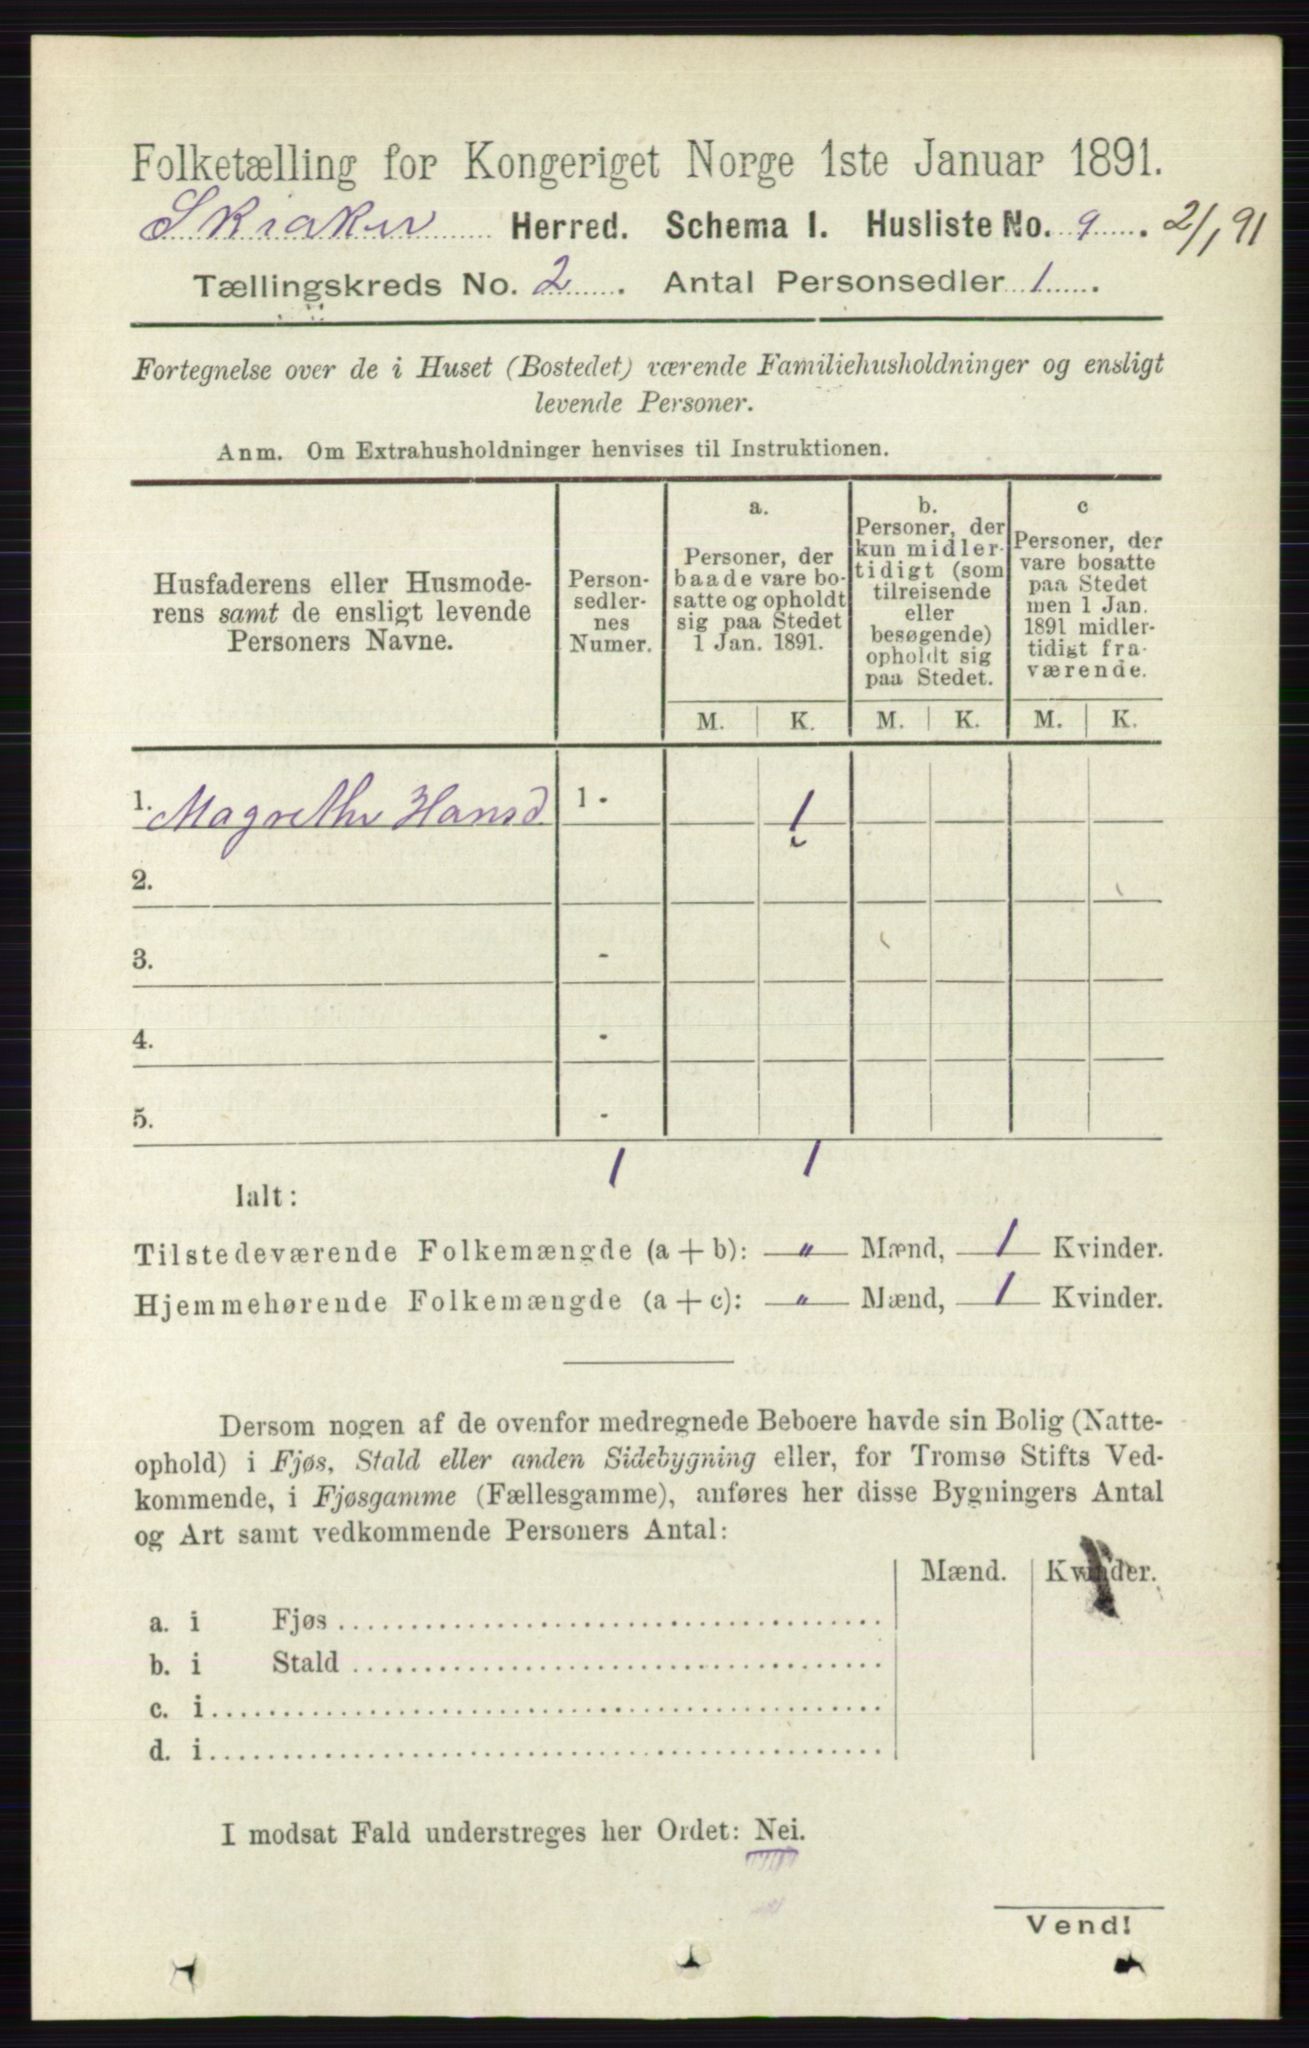 Folketælling for Kongeriget Norge 1ste Januar 1891.
Skiaker Herred. Schema I. Husliste No. 9. 2/1 91
Tællingskreds No. 2. Antal Personsedler 1.
Fortegnelse over de i Huset (Bostedet) værende Familiehusholdninger og ensligt
levende Personer.
Anm. Om Extrahusholdninger henvises til Instruktionen.
Husfaderens eller Husmode-
rens samt de ensligt levende
Personers Navne.
Person-
sedler-
nes
Numer.
a.
Personer, der
baade vare bo-
satte og opholdt
sig paa Stedet
1 Jan. 1891.
b.
Personer, der
kun midler-
tidigt (som
tilreisende
eller
besøgende)
opholdt sig
paa Stedet.
c
Personer, der
vare bosatte
paa Stedet
men 1 Jan.
1891 midler-
tidigt fra-
værende.
M. K. M. K. M. K.
1. Magrethe Hansd 1 - 1
2.
3. -
4. -
5. -
1 1
Ialt:
Tilstedeværende Folkemængde (a + b): „ Mænd, 1 Kvinder.
Hjemmehørende Folkemængde (a + c): „ Mænd, 1 Kvinder.
Dersom nogen af de ovenfor medregnede Beboere havde sin Bolig (Natte-
ophold) i Fjøs, Stald eller anden Sidebygning eller, for Tromsø Stifts Ved-
kommende, i Fjøsgamme (Fællesgamme), anføres her disse Bygningers Antal
og Art samt vedkommende Personers Antal:
Mænd. Kvinder.
a. i Fjøs
b. i Stald
c. i
d. i
I modsat Fald understreges her Ordet: Nei.
Vend!